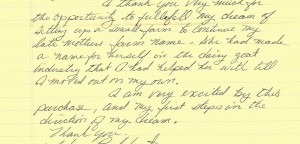 I thank you very much for
the opportunity to fullfefill my dream of
setting up a small farm to continue my
late mothers farm name - She had made
a name for herself in the dairy goat
industry that I had helped her with till
I moved out on my own.
I am very excited by this
purchase, and my first steps in the
direction of my dream.
Thank you,